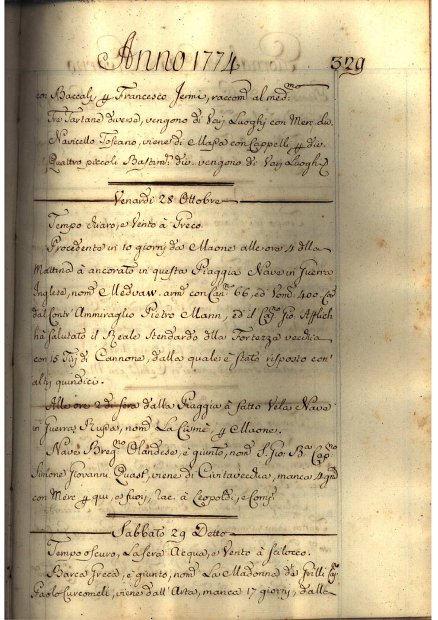 Anno 1774 329
con Baccalj p Francesco Jermi, raccomd al medmo
Tre Tartane diverse, vengono di Varj Luoghj con Merc. div.
Navicello Toscano, viene di Massa con Cappelli, p div.
Quattro piccoli Bastimti div. vengono di Varj Luoghj
Venardi 28 Ottobre
Tempo chiaro, e Vento à Greco
Procedente in 10 giorni da Maone alle ore 4 della
Mattina à ancorato in questa Piaggia Nave in Guerra
Inglese, nomd Medvaw. arm con Canni 66, ed Uomi 400. Cap
dal Contr' Ammiraglio Pietro Mann, ed il Capo Gio
hà Salutato il Reale Stendardo della Fortezza vecchia
con 15 Tiri di Cannone, dalla quale è stato risposto con
altri quindici.
Alle ore 2 di sera dalla Piaggia à fatto Vela Nave
in Guerra Russa, nomd La p Maone.
Nave Olandese, è giunto, nomd S. Gio: Bа Capno
Simone Giovanni Quast, viene di Civitavecchia, manca 4 gni
con Merc p qui, e fuori, rac. à Leopoldi, e Compi
Sabbato 29 Detto
Tempo oscuro, La sera Acqua, e Vento à Scilocco.
Barca Greca, è giunto, nomd La Madonna da Grilli Cap
Paolo Curcomeli, viene dall' Arta, manca 17 giorni, dalle